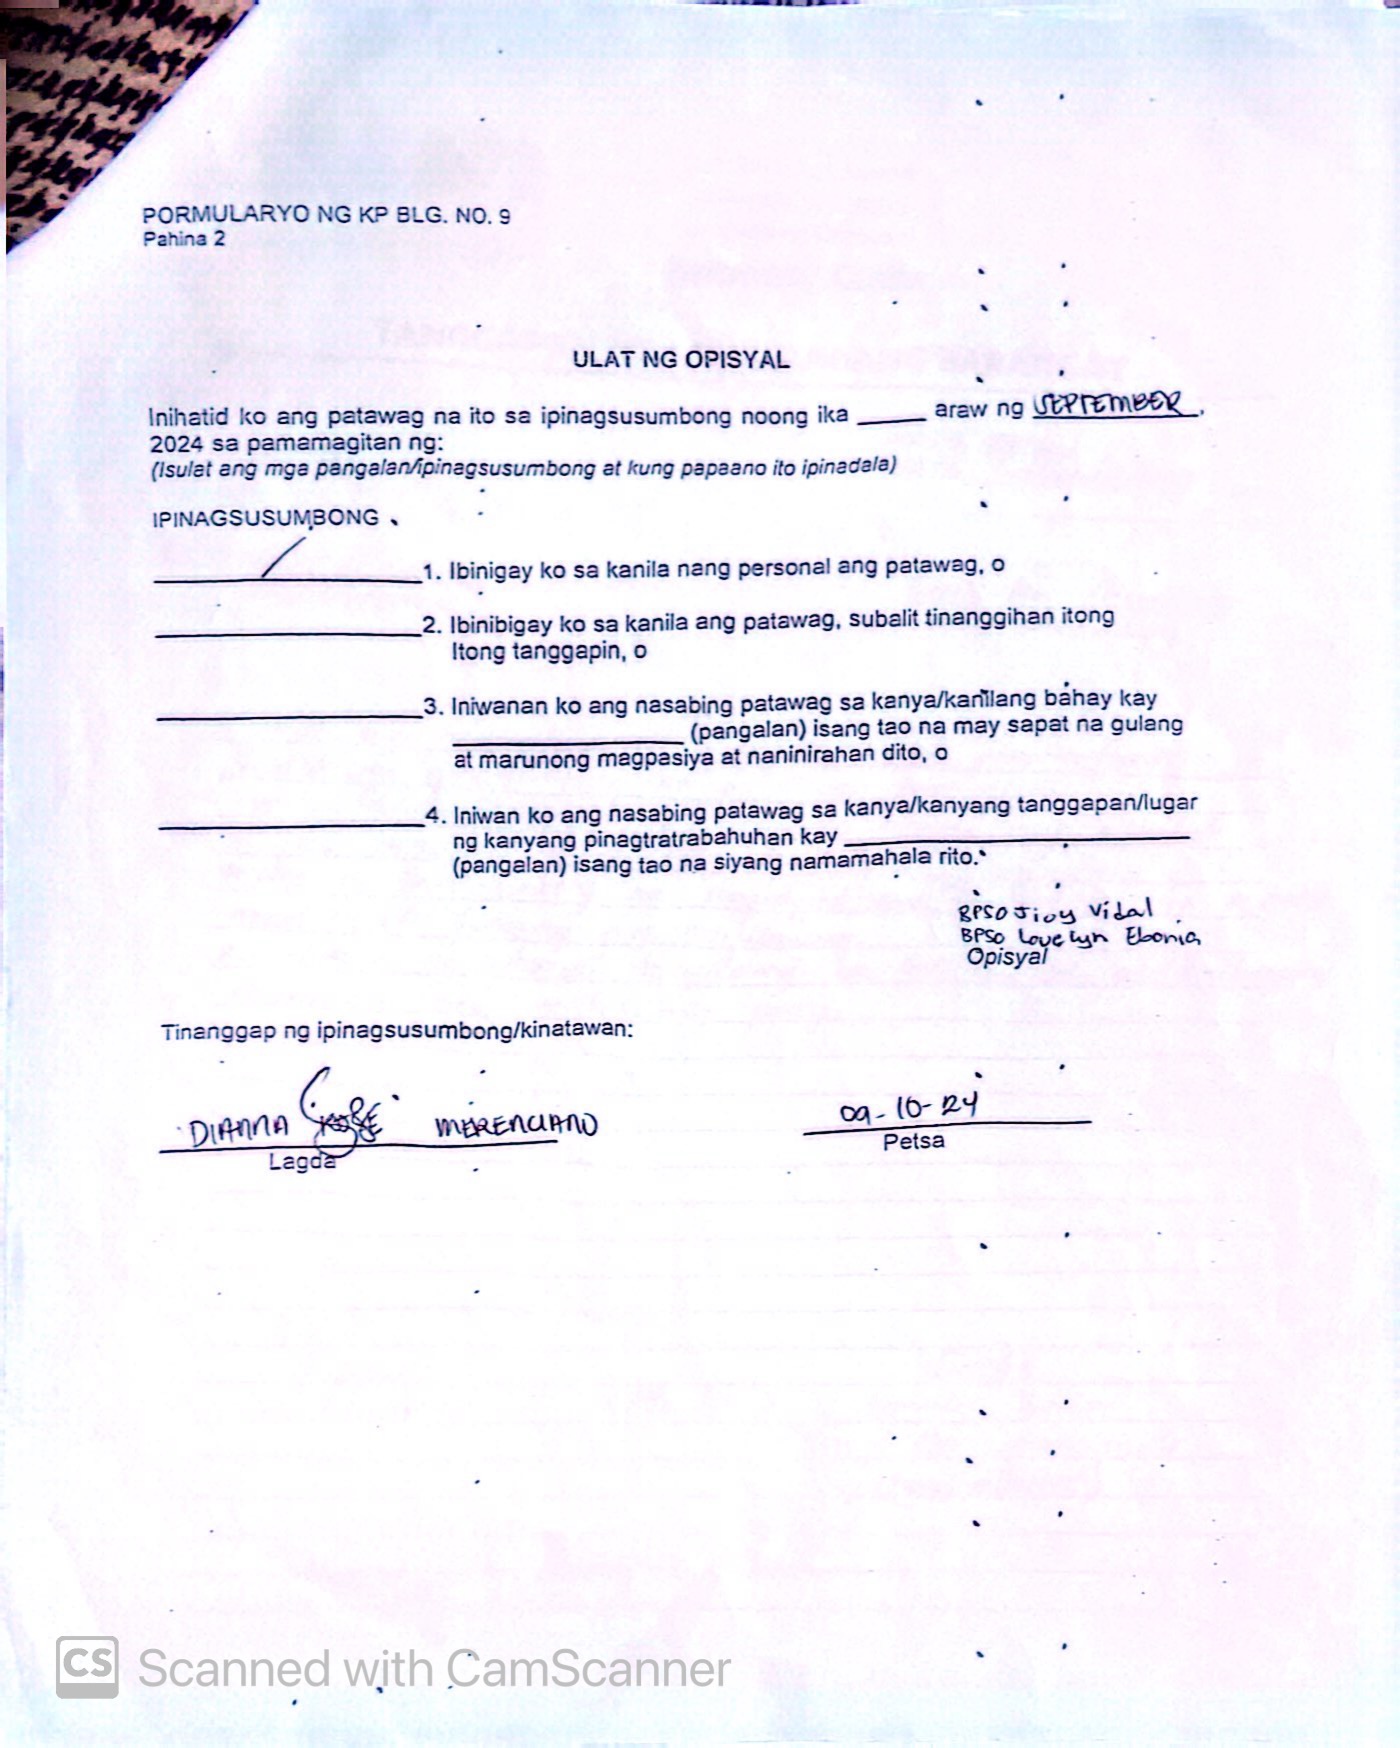 PORMULARYO NG KP BLG. NO. 9
Pahina 2
ULAT NG OPISYAL
Inihatid ko ang patawag na ito sa ipinagsusumbong noong ika ______ araw ng SEPTEMBER,
2024 sa pamamagitan ng:
(Isulat ang mga pangalan/ipinagsusumbong at kung papaano ito ipinadala)
IPINAGSUSUMBONG
1. Ibinigay ko sa kanila nang personal ang patawag, o
2. Ibinibigay ko sa kanila ang patawag, subalit tinanggihan itong
Itong tanggapin, o
3. Iniwanan ko ang nasabing patawag sa kanya/kanilang bahay kay
______ (pangalan) isang tao na may sapat na gulang
at marunong magpasiya at naninirahan dito, o
4. Iniwan ko ang nasabing patawag sa kanya/kanyang tanggapan/lugar
ng kanyang pinagtratrabahuhan kay ______
(pangalan) isang tao na siyang namamahala rito.
BPSO Vidal
BPSO Lovelyn Ebonia
Opisyal
Tinanggap ng ipinagsusumbong/kinatawan:
DIANNA MERENCIANO
Lagda
09-10-24
Petsa
CS Scanned with CamScanner